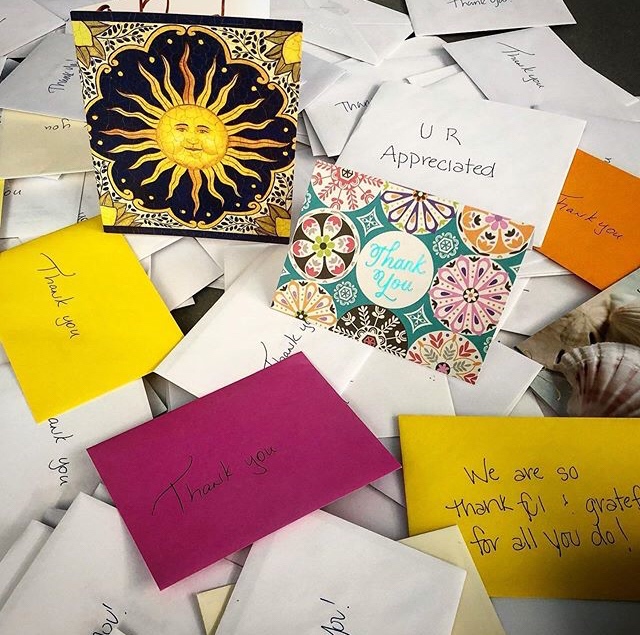 Thank you!
Thank you
Thank you
Than
you
U R
Appreciated
Thank you
Thank
You
Thank you
Thank yo
ank you
Thank you
We are so
thankful & gratef
for all you do!
you!
ou!